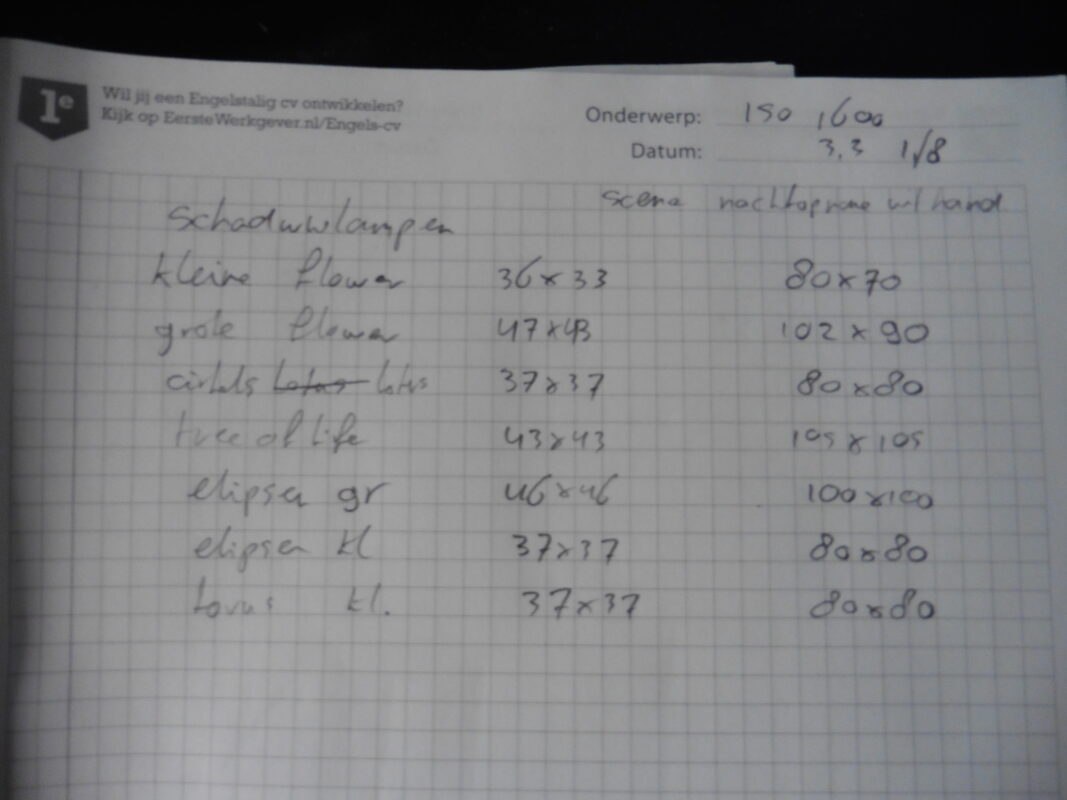 1e
Wil jij een Engelstalig cv ontwikkelen?
Kijk op EersteWerkgever.nl/Engels-cv
Onderwerp: ISO 1600
Datum: 3,3 1/8
scene nachtopname w/hand
Schaduwlampen
kleine flower 36x33 80x70
grote flower 47x43 102x90
cirkels lotus lotus 37x37 80x80
tree of life 43x43 105x105
elipsen gr 46x46 100x100
elipsen kl 37x37 80x80
torus kl. 37x37 80x80